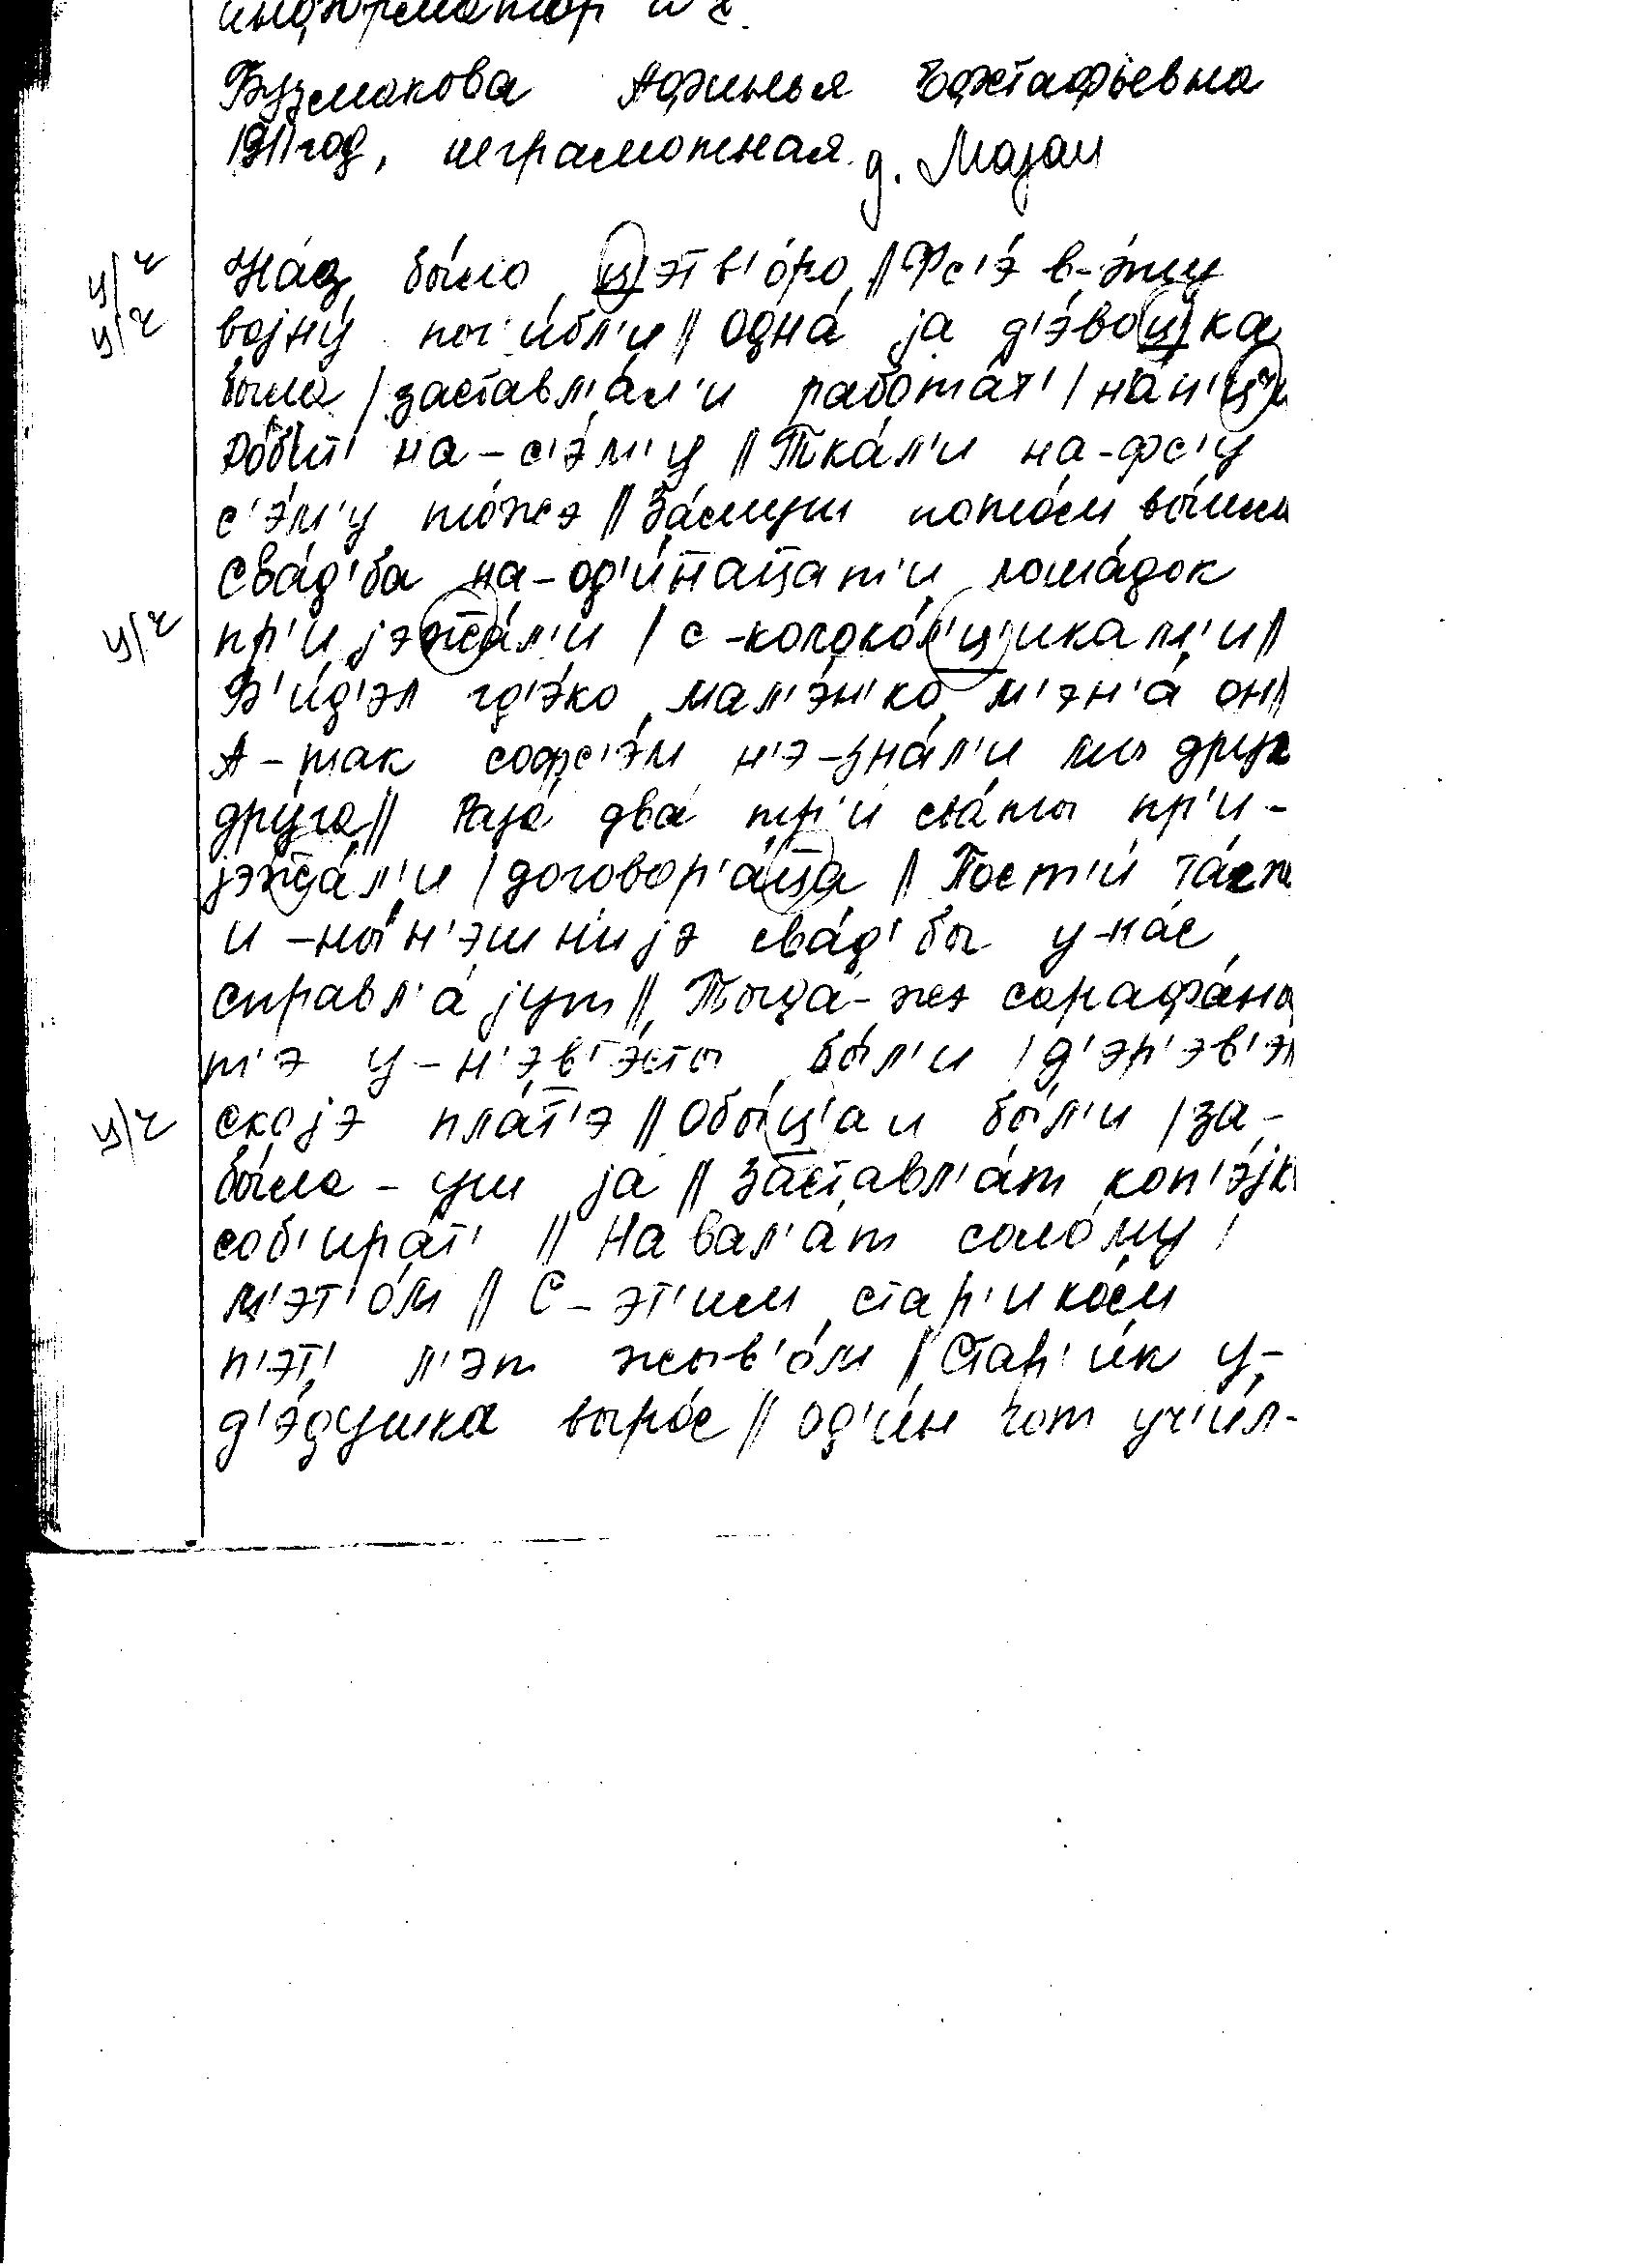 информатор
Бузмакова Афинья Евстафьевна
1911 год, неграмотная. д. Мазан
ц/ч На́с бы́ло цэтв'о́ро // Фс'э́ в-э́ту
ц/ч војну́ пог'и́бл'и // одна́ ја д'э́воцка
была́ / заставл'а́л'и работат' /
робит' на-с'э́м'у // Тка́л'и на-фс'у
с'э́м'у то́жэ // За́муш пото́м вы́шла
сва́д'ба на-од'и́нацат'и лоша́док
ц/ч пр'ијэжжа́л'и / с-колоко́л'ц'икам'и //
В'и́д'эл гд'э́ко мал'э́н'ко м'эн'а́ он //
А-так софс'э́м н'э-зна́л'и мы друг
дру́га // Раза́ два́ тр'и́ сва́ты пр'и-
јэжжа́л'и / договор'а́ца // Пост'и́ та́гжэ
и-ны́н'эшн'ијэ сва́д'бы у-на́с
справл'а́јут // Тогда́-жэ сарафа́ны
т'э у-н'эв'э́сты бы́л'и / д'эр'эв'э́н
ц/ч скојэ пла́т'э // Обы́ц'аи бы́л'и / за-
бы́ла-уш ја // Заставл'а́т коп'э́јк
соб'ират' // Навал'а́т соло́му /
м'эт'о́м // С-эт'им стар'ико́м
п'эт' л'эт жыв'о́м // Стар'и́к у-
д'э́душка вы́рос // од'и́н год уч'и́л-